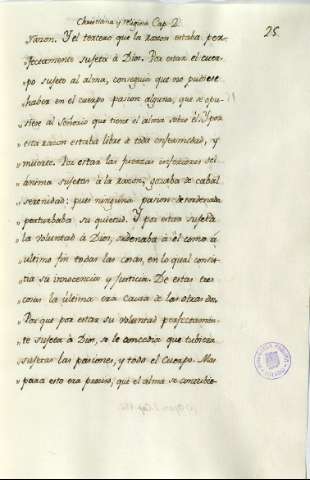 Christiana y religiosa Cap. 2.
25.
razon. Y el tercero que la razon estaba per-
„fectamente sujeta à Dios. Por estar el cuer-
„po sujeto al alma, conseguia que no pudiese
„haber en el cuerpo pasion alguna, que se opu-
„siese al señorio que tiene el alma sobre él. Y por
„esta razon estaba libre de toda enfermedad, y
„muerte. Por estar las fuerzas inferiores del
„ánima sujetas à la razon, gozaba de cabal
„serenidad; pues ninguna pasion desordenada
„perturbaba su quietud. Y por estar sujeta
„la voluntad à Dios, ordenaba à él como à
„último fin todas las cosas, en lo qual consis-
„tia su innocencia y justicia. De estas tres
„cosas la última era causa de las otras dos.
„Por que por estar su voluntad perfectamen-
„te sujeta à Dios, se le concedia que tubiera
„sujetas las pasiones, y todo el cuerpo. Mas
„para esto era preciso, que el alma se